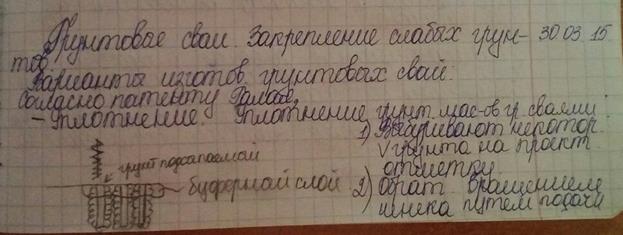 Грунтовые сваи. Закрепление слабых грун- 30 03 15
тов.
Варианты изготов. грунтовых свай.
Согласно патенту
– Уплотнение. Уплотнение грунт. мас-ов гр. сваями
1) некотор.
V грунта на проект
отметку
2) Обрат. вращением
шнека путем подачи
грунт подсыпаемой
буферной слой